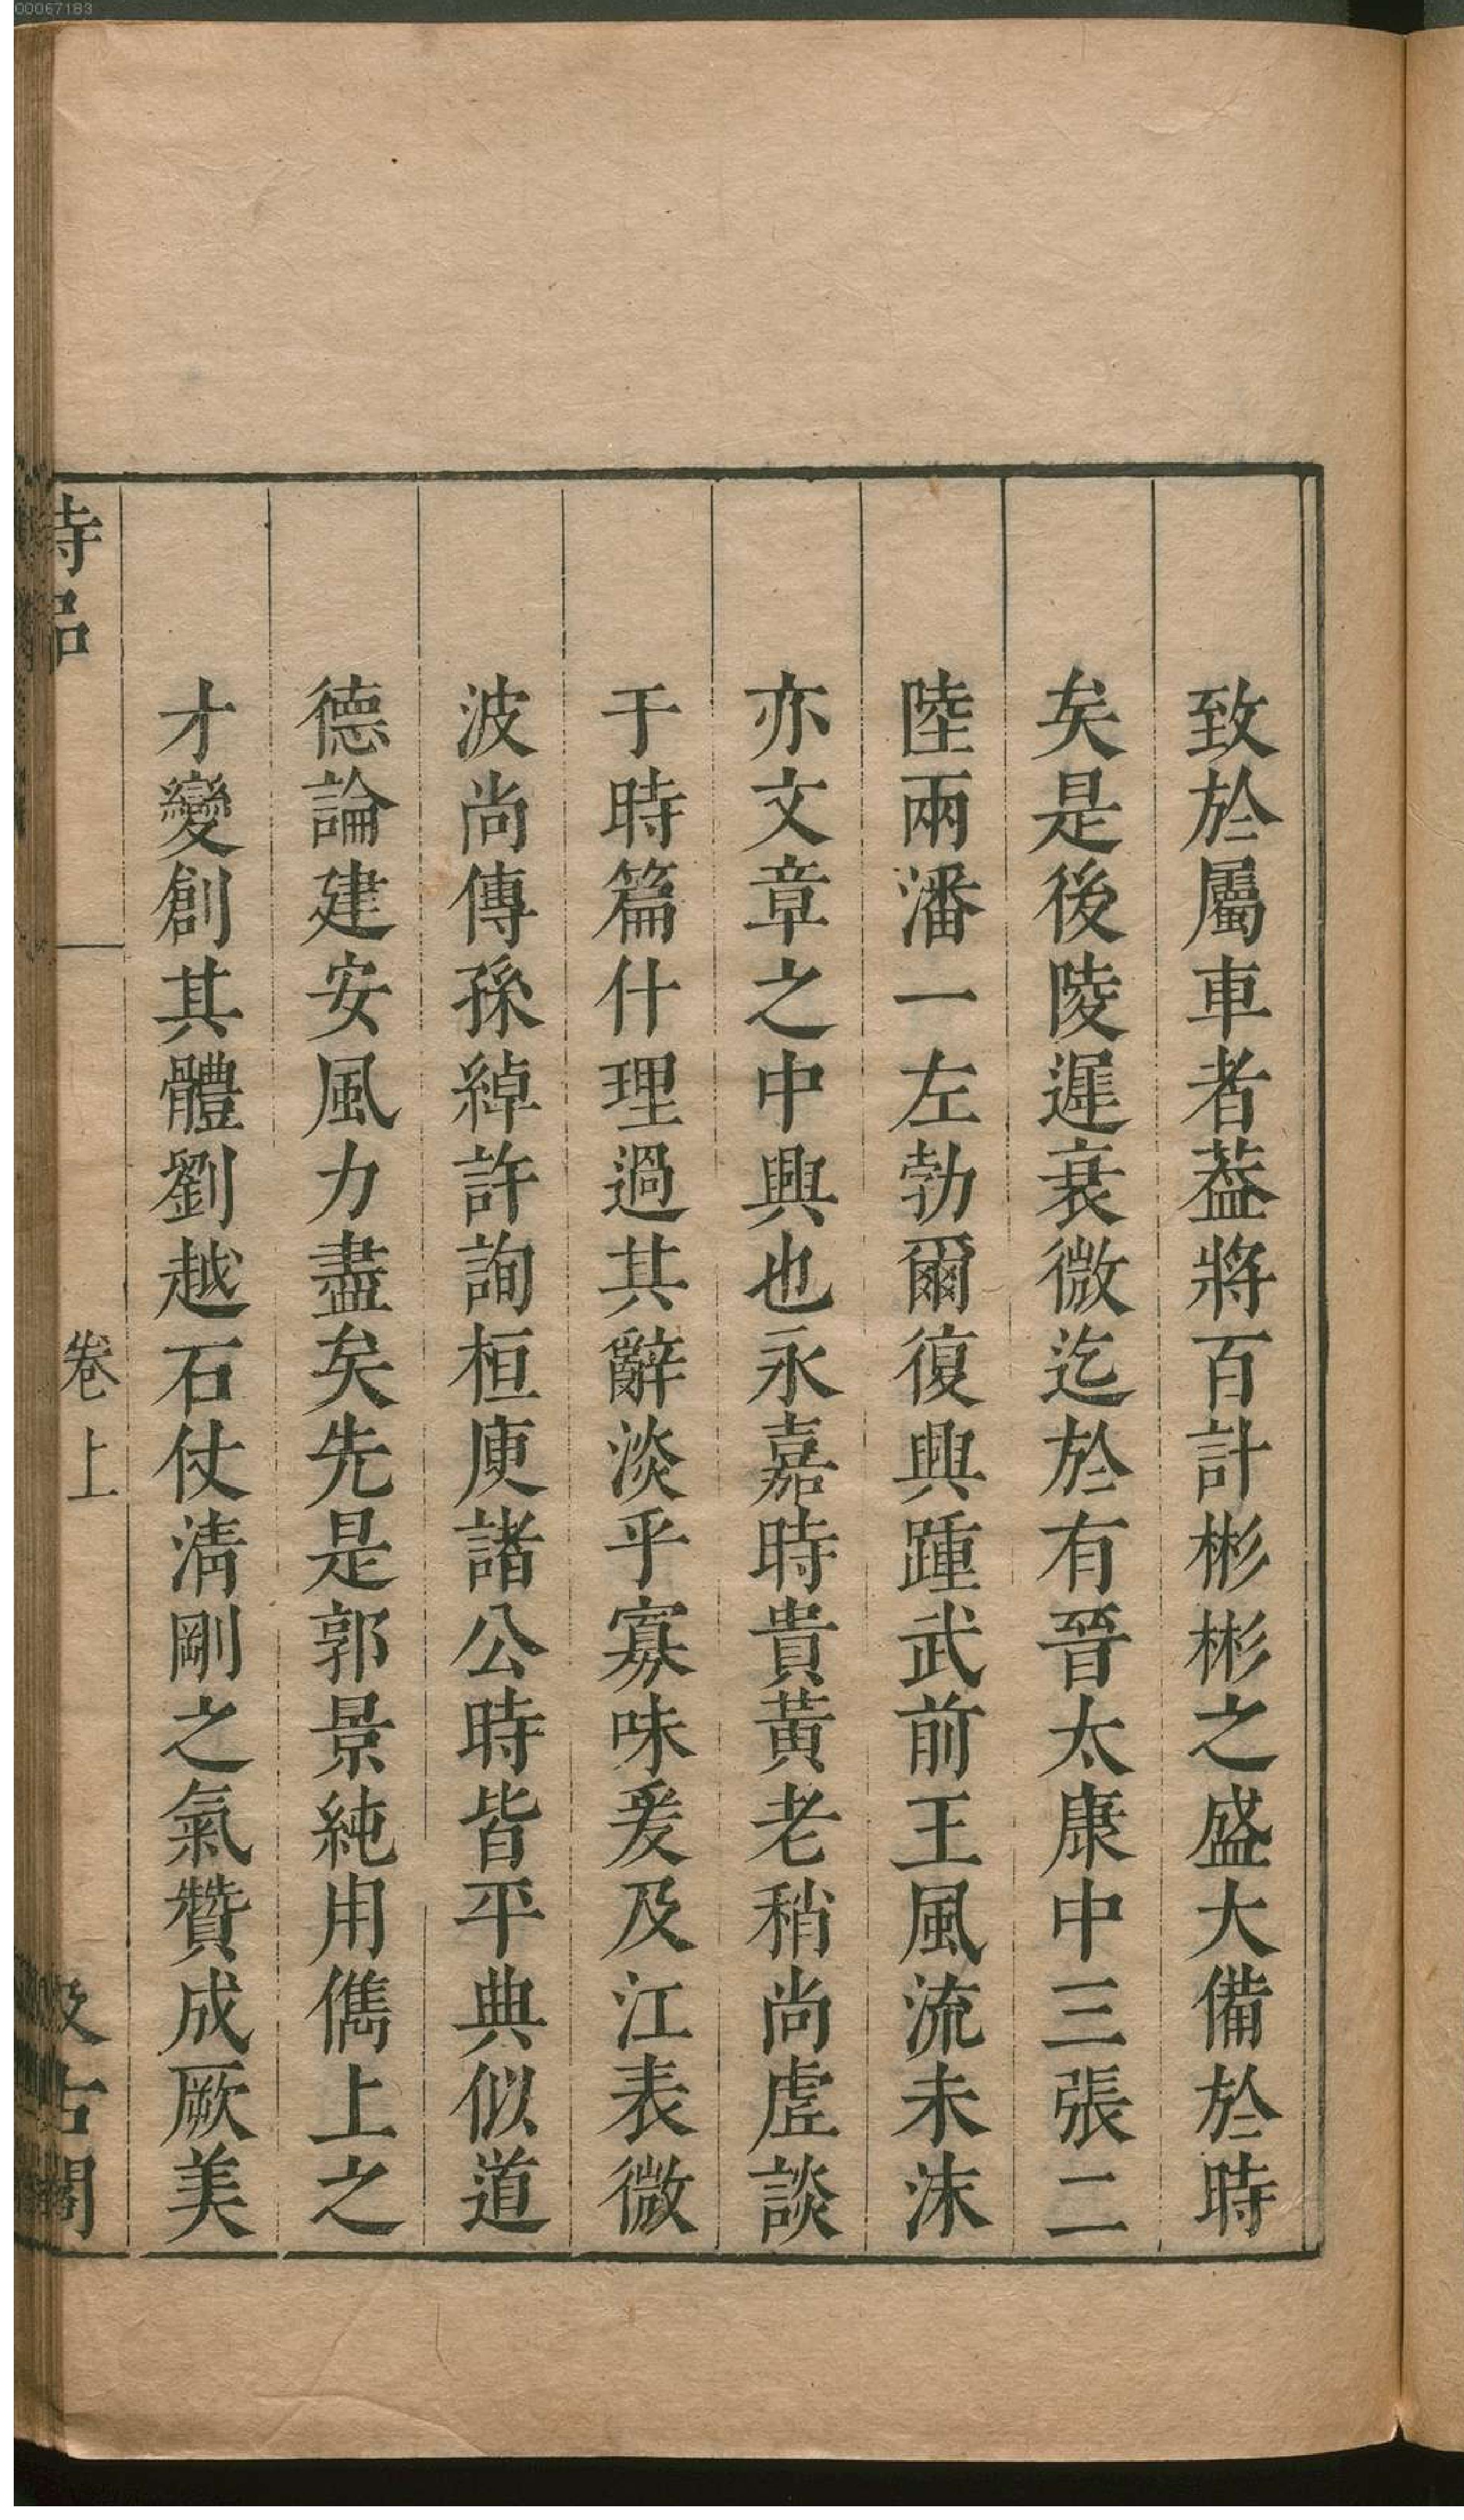 00067183
致於屬車者葢將百計彬彬之盛大備於時
矣是後陵遲衰微迄於有晉太康中三張二
陸兩潘一左勃爾復興踵武前王風流未沫
亦文章之中興也永嘉時貴黃老稍尚虛談
于時篇什理過其辭淡乎寡味爰及江表微
波尚傳孫綽許詢桓庾諸公時皆平典似道
德論建安風力盡矣先是郭景純用儁上之
才變創其體劉越石仗淸剛之氣贊成厥美
詩品 卷上 汲古閣